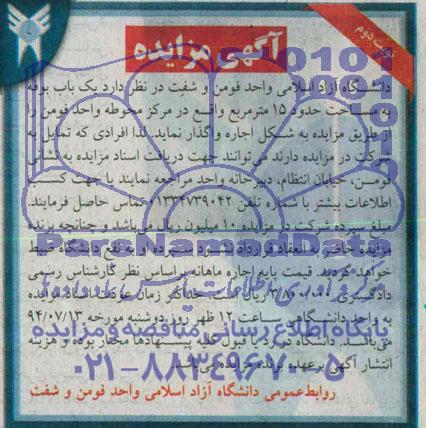 نوبت دوم
آگهی مزایده
دانشگاه آزاد اسلامی واحد فومن و شفت در نظر دارد یک باب بوفه
به مساحت حدود ۱۵ مترمربع واقع در مرکز محوطه واحد فومن را
از طریق مزایده به شکل اجاره واگذار نماید. لذا افرادی که تمایل به
شرکت در مزایده دارند می‌توانند جهت دریافت اسناد مزایده به نشانی
فومن، خیابان انتظام، دبیرخانه واحد مراجعه نمایند یا جهت کسب
اطلاعات بیشتر با شماره تلفن ۰۱۳۳۴۷۳۹۰۴۲ تماس حاصل فرمایند.
مبلغ سپرده شرکت در مزایده ۱۰ میلیون ریال می‌باشد و چنانچه برنده
مزایده حاضر به انعقاد قرارداد نشود سپرده او به نفع دانشگاه ضبط
خواهد گردید. قیمت پایه اجاره ماهانه براساس نظر کارشناس رسمی
دادگستری ریال است. حداکثر زمان عودت اسناد مزایده
به واحد دانشگاهی ساعت ۱۲ ظهر روز دوشنبه مورخه ۹۴/۰۷/۱۳
می‌باشد. دانشگاه در رد یا قبول کلیه پیشنهادها مختار بوده و هزینه
انتشار آگهی برعهده برنده مزایده می‌باشد.
روابط عمومی دانشگاه آزاد اسلامی واحد فومن و شفت
ParsNamadData
پایگاه اطلاع رسانی مناقصه و مزایده
۰۲۱-۸۸۳۴۹۶۷۰-۵